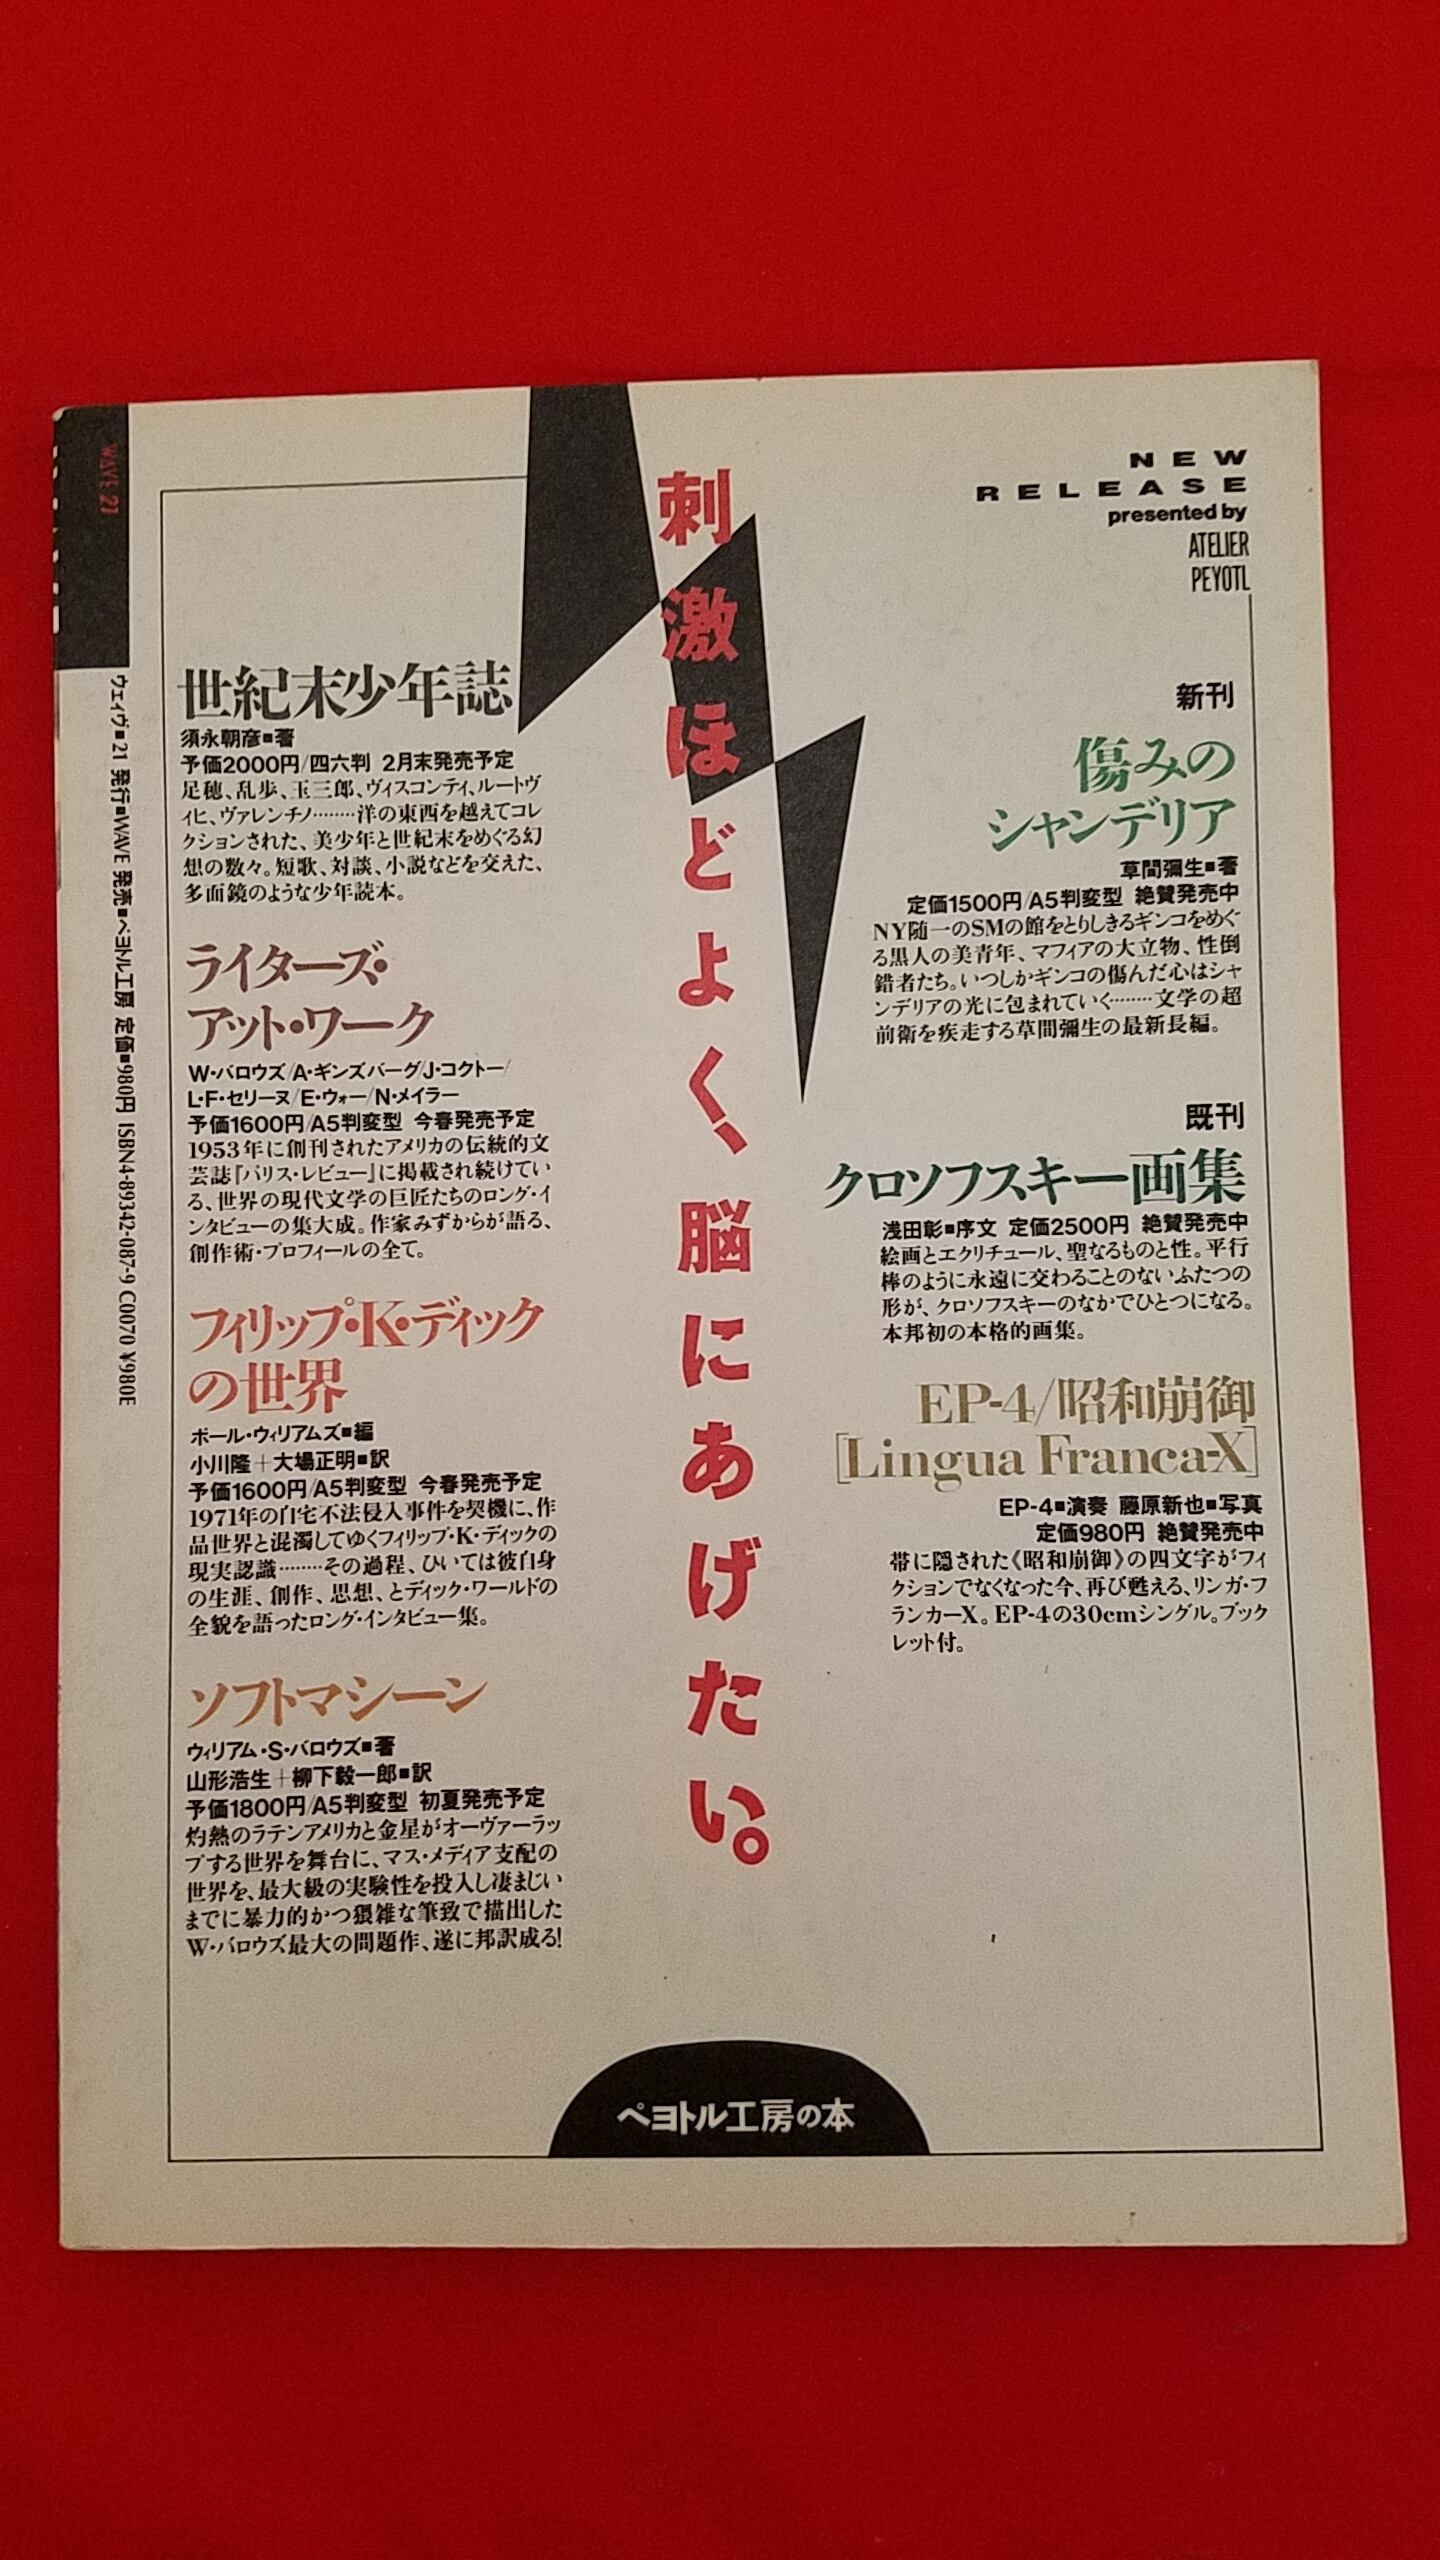 WAVE 21
ウェイヴ■21 発行■WAVE 発売■ペヨトル工房 定価■980円 ISBN4-89342-087-9 C0070 ¥980E
NEW
RELEASE
presented by
ATELIER
PEYOTL
刺激ほどよく、脳にあげたい。
新刊
傷みの
シャンデリア
草間彌生■著
定価1500円/A5判変型 絶賛発売中
NY随一のSMの館をとりしきるギンコをめぐ
る黒人の美青年、マフィアの大立物、性倒
錯者たち。いつしかギンコの傷んだ心はシャ
ンデリアの光に包まれていく………文学の超
前衛を疾走する草間彌生の最新長編。
既刊
クロソフスキー画集
浅田彰■序文 定価2500円 絶賛発売中
絵画とエクリチュール、聖なるものと性。平行
棒のように永遠に交わることのないふたつの
形が、クロソフスキーのなかでひとつになる。
本邦初の本格的画集。
EP-4/昭和崩御
[Lingua Franca-X]
EP-4■演奏 藤原新也■写真
定価980円 絶賛発売中
帯に隠された《昭和崩御》の四文字がフィ
クションでなくなった今、再び甦える、リンガ・フ
ランカーX。EP-4の30cmシングル。ブック
レット付。
世紀末少年誌
須永朝彦■著
予価2000円/四六判 2月末発売予定
足穂、乱歩、玉三郎、ヴィスコンティ、ルートヴ
ィヒ、ヴァレンチノ………洋の東西を越えてコレ
クションされた、美少年と世紀末をめぐる幻
想の数々。短歌、対談、小説などを交えた、
多面鏡のような少年読本。
ライターズ・
アット・ワーク
W・バロウズ/A・ギンズバーグ/J・コクトー/
L・F・セリーヌ/E・ウォー/N・メイラー
予価1600円/A5判変型 今春発売予定
1953年に創刊されたアメリカの伝統的文
芸誌『パリス・レビュー』に掲載され続けてい
る、世界の現代文学の巨匠たちのロング・イ
ンタビューの集大成。作家みずからが語る、
創作術・プロフィールの全て。
フィリップ・K・ディック
の世界
ポール・ウィリアムズ■編
小川隆+大場正明■訳
予価1600円/A5判変型 今春発売予定
1971年の自宅不法侵入事件を契機に、作
品世界と混濁してゆくフィリップ・K・ディックの
現実認識………その過程、ひいては彼自身
の生涯、創作、思想、とディック・ワールドの
全貌を語ったロング・インタビュー集。
ソフトマシーン
ウィリアム・S・バロウズ■著
山形浩生+柳下毅一郎■訳
予価1800円/A5判変型 初夏発売予定
灼熱のラテンアメリカと金星がオーヴァーラッ
プする世界を舞台に、マス・メディア支配の
世界を、最大級の実験性を投入し凄まじい
までに暴力的かつ猥雑な筆致で描出した
W・バロウズ最大の問題作、遂に邦訳成る!
ペヨトル工房の本